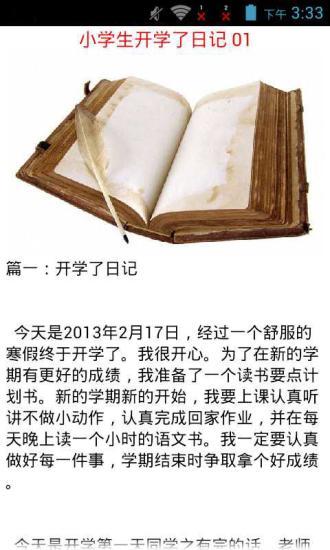 下午 3:33
小学生开学了日记 01
篇一：开学了日记
今天是2013年2月17日，经过一个舒服的
寒假终于开学了。我很开心。为了在新的学
期有更好的成绩，我准备了一个读书要点计
划书。新的学期新的开始，我要上课认真听
讲不做小动作，认真完成回家作业，并在每
天晚上读一个小时的语文书。我一定要认真
做好每一件事，学期结束时争取拿个好成绩
。
今天是开学第一天同学之有完的话，老师